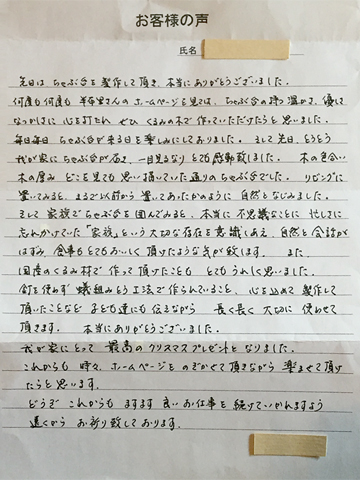 お客様の声
氏名
先日は ちゃぶ台を製作して頂き、本当にありがとうございました。
何度も何度も さんの ホームページを見ては、ちゃぶ台の持つ温かさ、優しさ
なつかしさに 心を打たれ ぜひ くるみの木で 作っていただけたらと思いました。
毎日毎日 ちゃぶ台が来る日を 楽しみにしておりました。 そして 先日、とうとう
我が家に ちゃぶ台が届き、一目見るなり とても感動致しました。 木の色合い
木の厚み どこを見ても 思い描いていた通りの ちゃぶ台でした。 リビングに
置いてみると、まるで以前から 置いてあったかのように 自然と なじみました。
そして 家族で ちゃぶ台を 囲んでみると、本当に 不思議なことに 忙しさに
忘れかけていた「家族」という 大切な存在を 意識しあえ、自然と 会話が
はずみ、食事も とてもおいしく 頂けたような気が致します。 また、
国産のくるみ材で 作って頂けたことも とてもうれしく思いました。
釘を使わず 蟻組みという工法で 作られていること、心を込めて 製作して
頂いたことなど 子ども達にも 伝えながら 長く長く 大切に 使わせて
頂きます。 本当に ありがとうございました。
我が家にとって 最高の クリスマスプレゼントと なりました。
これからも 時々、ホームページを のぞかせて 頂きながら 楽ませて頂け
たらと思います。
どうぞ これからも ますます 良い お仕事を 続けていかれますよう
遠くから お祈り致しております。